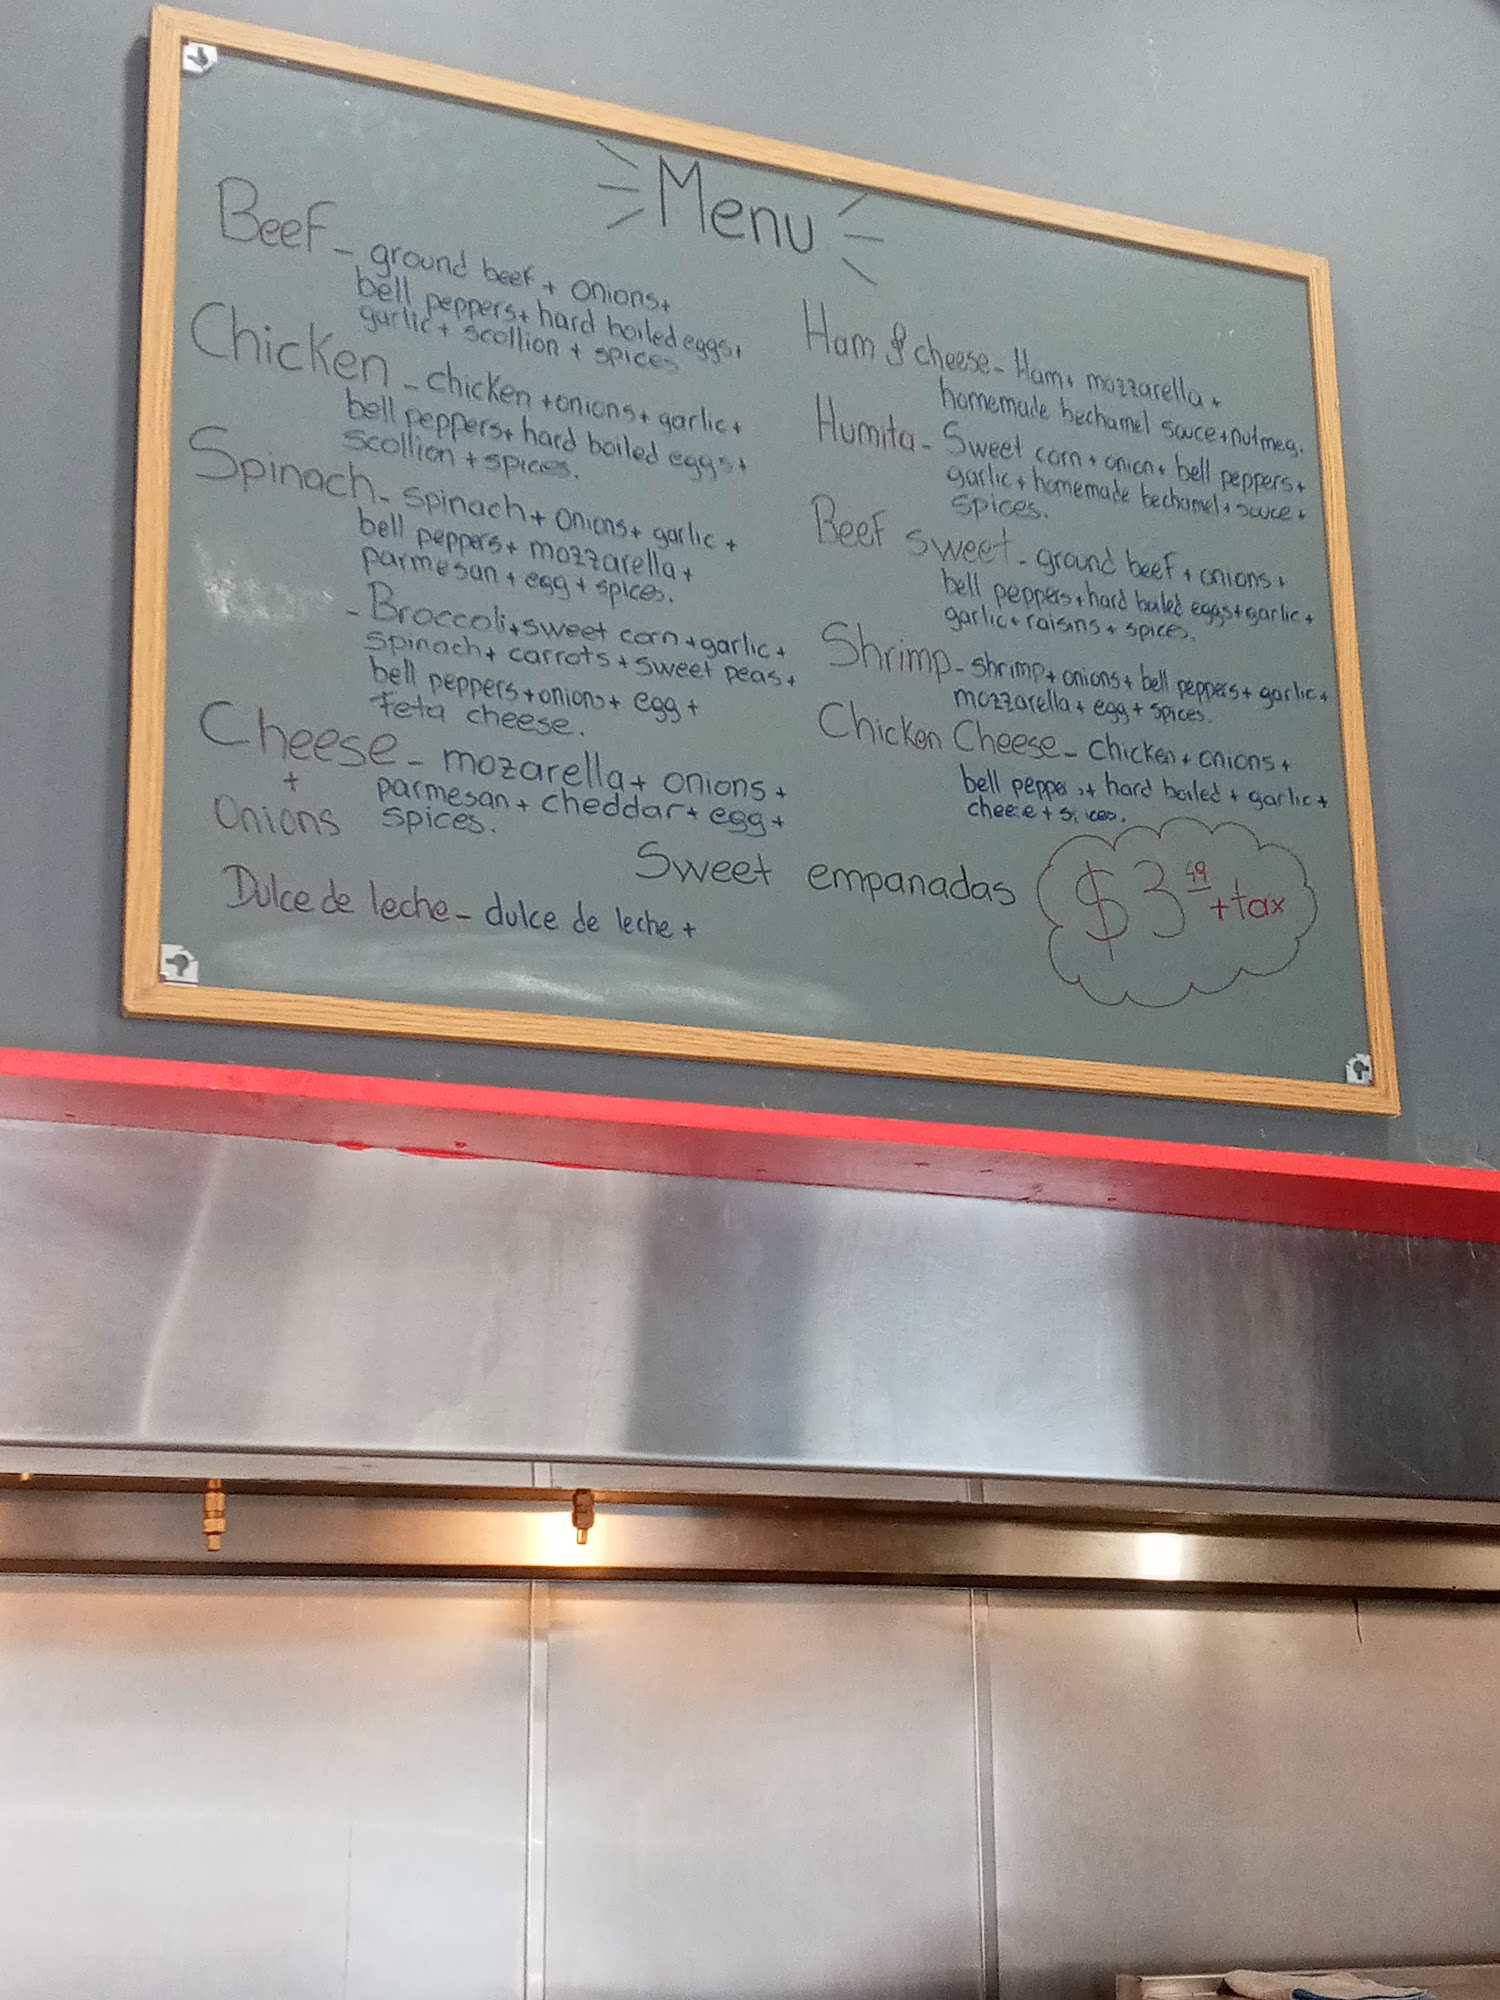 Menu
Beef - ground beef + onions +
bell peppers + hard boiled eggs +
garlic + scollion + spices
Chicken - chicken + onions + garlic +
bell peppers + hard boiled eggs +
scollion + spices.
Spinach - spinach + onions + garlic +
bell peppers + mozzarella +
parmesan + egg + spices.
- Broccoli + sweet corn + garlic +
spinach + carrots + sweet peas +
bell peppers + onions + egg +
feta cheese.
Cheese - mozarella + onions +
+ parmesan + cheddar + egg +
Onions spices.
Ham & cheese - Ham + mozzarella +
homemade bechamel sauce + nutmeg.
Humita - Sweet corn + onion + bell peppers +
garlic + homemade bechamel + sauce +
spices.
Beef sweet - ground beef + onions +
bell peppers + hard boiled eggs + garlic +
garlic + raisins + spices.
Shrimp - shrimp + onions + bell peppers + garlic +
mozzarella + egg + spices.
Chicken Cheese - chicken + onions +
bell pepper + hard boiled + garlic +
cheese +
Sweet empanadas
Dulce de leche - dulce de leche +
$3.49 + tax